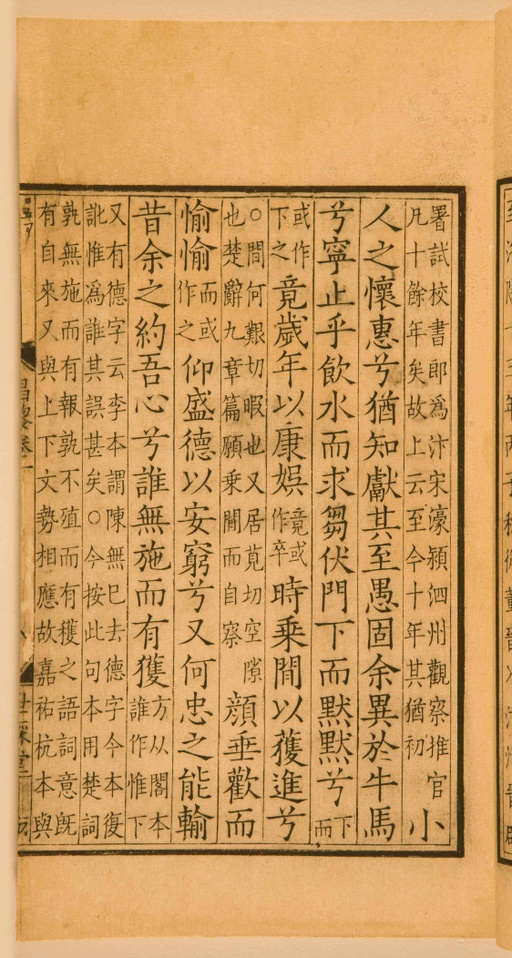 署試校書郎為汴宋濠潁泗州觀察推官
凡十餘年矣故上云至今十年其猶初
小
人之懷惠兮猶知獻其至愚固余異於牛馬
兮寧止乎飲水而求芻伏門下而默默兮下而
或作下之竟歲年以康娛竟或作卒時乘間以獲進兮
○間何艱切暇也又居莧切空隙
也楚辭九章篇願乘間而自察
顏垂歡而
愉愉而或作之仰盛德以安窮兮又何忠之能輸
昔余之約吾心兮誰無施而有獲方从閣本誰作惟下
又有德字云李本謂陳無已去德字今本復
訛惟為誰其誤甚矣○今按此句本用楚詞
孰無施而有報孰不殖而有穫之語詞意既
有自來又與上下文勢相應故嘉祐杭本與
昌黎卷一
世綵堂